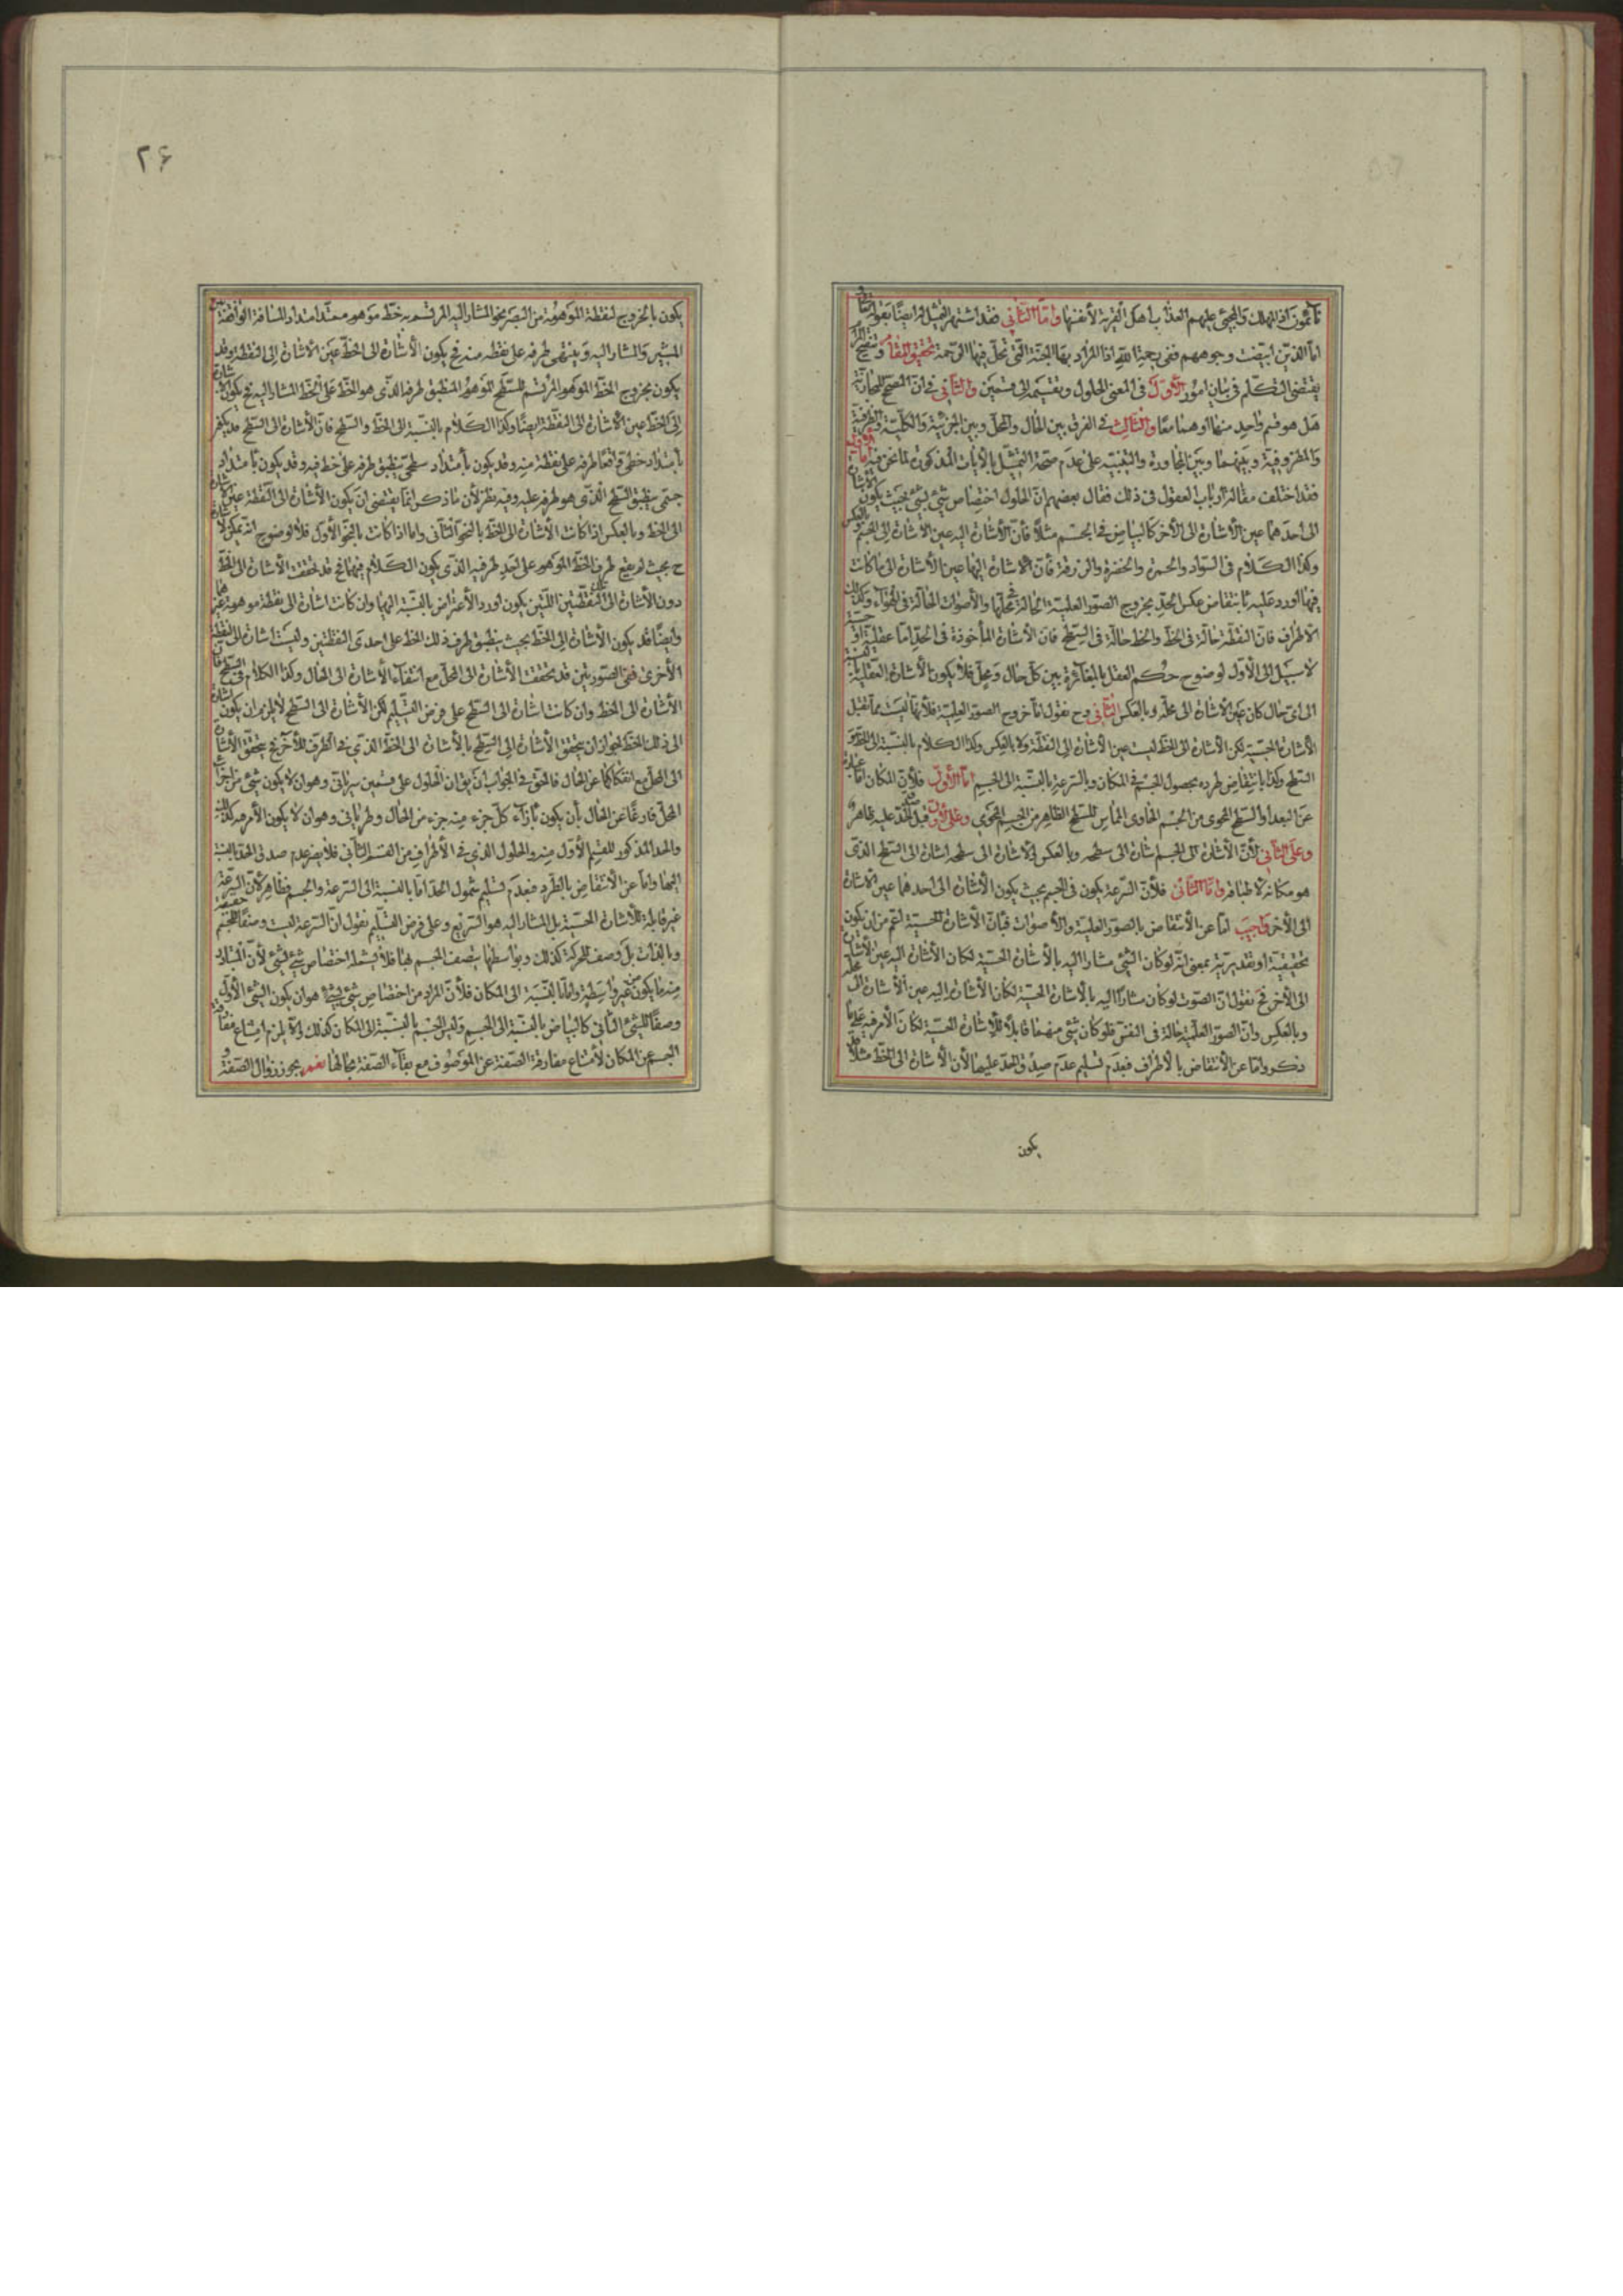 نآئمون اذ الهلك والمجئ عليهم العذاب اهل القرية لأنفسها وامّا الثّاني فقد اشتهر التمثيل له ايضًا بقوله تعالى
امّا الذين ابيضت وجوههم ففي رحمة الله اذ المراد بها الجنّة الّتي تحلّ فيها الرّحمة تحقيق المقام وتنقيح المرام
يقتضي التكلّم في بيان امور الأوّل في المعنى الحلول وتقسيمه الى قسمين والثّاني في انّ المصحّح للمجاز
هل هو قسم واحد منهما او هما معًا والثالث في الفرق بين الحال والمحلّ وبين الجزئية والكلّية والظرفية
والمظروفية وبينهما وبين المجاورة والتنبيه على عدم صحّة التمثّل بالأيات المذكورة لما نحن فيه امّا الأوّل
فقد اختلف مقالة ارباب العقول في ذلك فقال بعضهم انّ الحلول اختصاص شئ بشئ بحيث يكون الأشارة
الى احدهما عين الأشارة الى الأخر كالبياض في الجسم مثلًا فأنّ الأشارة اليه عين الأشارة الى الجسم وبالعكس
وكذا الكلام في السّواد والحمرة والخضرة والزرقة فأنّ الأشارة اليها عين الأشارة الى ما كانت
فيها اورد عليه بأنتقاض عكس الحدّ بخروج الصّور العلميّة الحالة في محلّها والأصوات الحالّة في الهواء وكذلك
الأطراف فانّ النقطة حالة في الخطّ والخط حالّة في السّطح فانّ الأشارة المأخوذة في الحدّ امّا عقلية او حسيّة
لا سبيل الى الأوّل لوضوح حكم العقل بالمغائرة بين كلّ حال ومحلّ فلا يكون بالأشارة العقلية
الى اىّ حال كان عين الأشارة الى محلّه وبالعكس الثّاني وح نقول امّا خروج الصور العلميّة فلأنّها ليست ممّا تقبل
الأشارة الحسيّة لكن الأشارة الى الخطّ ليست عين الأشارة الى النقطة ولا بالعكس وكذا الكلام بالنسبة الى الخطّ و
السّطح وكذا بانتقاض طرده بحصول الجسم في المكان وبالسّرعة بالنسبة الى الجسم امّا الأوّل فلأنّ المكان امّا عبارة
عن البعد او السّطح المحوى من الجسم الحاوى المماس للسّطح الظاهر من الجسم المحوى وعلى الأوّل صدق الحدّ عليه ظاهر
وعلى الثّاني لأنّ الأشارة الى الجسم اشارة الى سطحه وبالعكس والأشارة الى سطحه اشارة الى السّطح الذى
هو مكانه لأطباقه وامّا الثّاني فلأنّ السّرعة يكون في الجسم بحيث يكون الأشارة الى احدهما عين الأشارة
الى الأخر واجيب امّا عن الأنتقاض بالصّور العلميّة والأصوات فبأنّ الأشارة الحسيّة اعمّ من ان يكون
تحقيقية او تقديريّة بمعنى انّه لو كان الشّئ مشارًا اليه بالأشارة الحسيّة لكان الأشارة اليه عين الأشارة
الى الأخر فح نقول انّ الصّوت لو كان مشارًا اليه بالأشارة الحسيّة لكان الأشارة اليه عين الأشارة الى محله
وبالعكس وانّ الصور العلميّة حالة في النفس فلو كان شئ منهما قابلًا للأشارة الحسيّة لكان الأمر فيه على ما
ذكر وامّا عن الأنتقاض بالأطراف فبعدم تسليم عدم صدق الحدّ عليها لأنّ الأشارة الى الخطّ مثلًا قد
يكون
٢۶
يكون بالخروج لنقطة الموهومة من البصر نحو المشار اليه المرتسم به خطّ موهوم ممتدّ امتداد المسافة الواقعة بين
المشير والمشار اليه وينتهى طرفه على نقطة منه فح يكون الأشارة الى الخطّ عين الأشارة الى النقطة وقد
يكون بخروج الخطّ الموهوم المرتسم للسّطح الموهوم المنطبق طرفه الذى هو الخطّ على الخطّ المشار اليه فح يكون الأشارة
الى الخطّ عين الأشارة الى النقطة ايضًا وكذا الكلام بالنسبة الى الخطّ والسّطح فانّ الأشارة الى السّطح قد يكون
بأمتداد خطىّ واقعًا طرفه على نقطة منه وقد يكون بأمتداد سطحىّ ينطبق طرفه على خطّ فيه وقد يكون بأمتداد
جسمى ينطبق السّطح الذى هو طرفه عليه وفيه نظر لأنّ ما ذكر انّما يقتضى ان يكون الأشارة الى النّقطة عين الأشارة
الى الخطّ وبالعكس اذا كانت الأشارة الى الخطّ بالنحو الثّاني وامّا اذا كانت بالنحو الأوّل فلا لوضوح انّه يمكن الأشارة
ح بحيث لم يقع طرف الخطّ الموهوم على احد طرفيه الذى يكون الكلام فيهما فح قد تحققت الأشارة الى الخطّ
دون الأشارة الى تلك النّقطتين اللّتين يكون اورد الأعتراض بالنسبة اليهما وان كانت اشارة الى نقطة موهومة غيرهما
وايضًا قد يكون الأشارة الى الخطّ بحيث ينطبق طرف ذلك الخطّ على احدى النقطتين وليست اشارة الى النقطة
الأخرى ففى الصّورتين قد تحققت الأشارة الى المحلّ مع انتفاء الأشارة الى الحال وكذا الكلام في السّطح فانّ
الأشارة الى الخطّ وان كانت اشارة الى السّطح على فرض التسليم لكن الأشارة الى السّطح لا يلزم ان يكون اشارة
الى ذلك الخطّ لجواز ان يتحقق الأشارة الى السّطح بالأشارة الى الخطّ الذى في الطّرف الأخر فح يتحقّق الأشارة
الى المحلّ مع انفكاكها عن الحال فالحقّ في الجواب ان يقال انّ الحلول على قسمين سريانى وهو ان لا يكون شئ من اجزاء
المحلّ فارغًا عن الحال بأن يكون بأزاء كلّ جزء منه جزء من الحال وطريانى وهو ان لا يكون الأمر فيه كذلك
والحدّ المذكور للقسم الأوّل منه والحلول الذى في الأطراف من القسم الثّاني فلا يضرّ عدم صدق الحدّ بالنسبة
اليها وامّا عن الأنتقاض بالطّرد فبعدم تسليم شمول الحدّ امّا بالنسبة الى السّرعة والجسم فظاهر لأنّ السّرعة
غير قابلة للأشارة الحسيّة بل المشار اليه هو السّريع وعلى فرض التسليم نقول انّ السّرعة ليست وصفًا للجسم حقيقة
وبالذات بل وصف للحركة كذلك وبواسطتها يتصف الجسم بها فلا يشمله اختصاص شئ بشئ لأنّ المتبادر
منه ما يكون من غير واسطة وامّا بالنسبة الى المكان فلأنّ المراد من اختصاص شئ بشئ هو ان يكون الشّئ الأوّل
وصفًا للشّئ الثّاني كالبياض بالنسبة الى الجسم وليس الجسم بالنسبة الى المكان كذلك والّا يلزم امتناع مفارقة
الجسم عن المكان لأمتناع مفارقة الصّفة عن الموصوف مع بقاء الصّفة بحالها نعم يجوز زوال الصّفة و